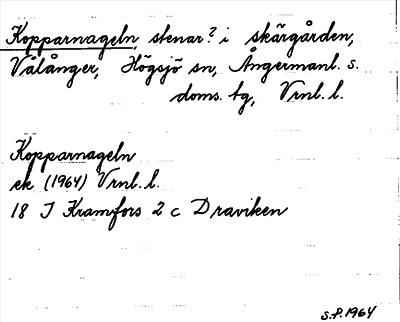 Kopparnageln, stenar? i skärgården,
Vålånger, Högsjö sn, Ångermanl. s.
doms. tg, Vrnl. l.
Kopparnageln
ek (1964) Vrnl. l.
18 J Kramfors 2 c Draviken
S.P. 1964